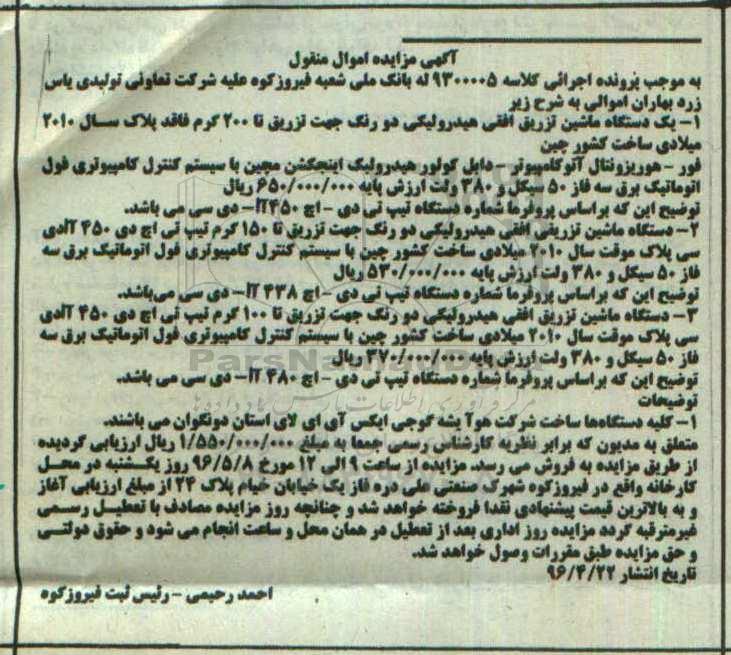 آگهی مزایده اموال منقول
به موجب پرونده اجرائی کلاسه ۹۳۰۰۰۰۵ له بانک ملی شعبه فیروزکوه علیه شرکت تعاونی تولیدی یاس
زرد بهاران اموالی به شرح زیر
۱- یک دستگاه ماشین تزریق افقی هیدرولیکی دو رنگ جهت تزریق تا ۲۰۰ گرم فاقد پلاک سال ۲۰۱۰
میلادی ساخت کشور چین
فور - هوریزونتال آتوکامپیوتر - دابل کولور هیدرولیک اینجکشن مچین با سیستم کنترل کامپیوتری فول
اتوماتیک برق سه فاز ۵۰ سیکل و ۳۸۰ ولت ارزش پایه ۶۵۰/۰۰۰/۰۰۰ ریال
توضیح این که براساس پروفرما شماره دستگاه تیپ تی دی - اچ ۴۵۰آآ- دی سی می باشد.
۲- دستگاه ماشین تزریقی افقی هیدرولیکی دو رنگ جهت تزریق تا ۱۵۰ گرم تیپ تی اچ دی ۴۵۰ آآدی
سی پلاک موقت سال ۲۰۱۰ میلادی ساخت کشور چین با سیستم کنترل کامپیوتری فول اتوماتیک برق سه
فاز ۵۰ سیکل و ۳۸۰ ولت ارزش پایه ۵۳۰/۰۰۰/۰۰۰ ریال
توضیح این که براساس پروفرما شماره دستگاه تیپ تی دی - اچ ۴۳۸ آآ- دی سی می‌باشد.
۳- دستگاه ماشین تزریق افقی هیدرولیکی دو رنگ جهت تزریق تا ۱۰۰ گرم تیپ تی اچ دی ۴۵۰ آآدی
سی پلاک موقت سال ۲۰۱۰ میلادی ساخت کشور چین با سیستم کنترل کامپیوتری فول اتوماتیک برق سه
فاز ۵۰ سیکل و ۳۸۰ ولت ارزش پایه ۳۷۰/۰۰۰/۰۰۰ ریال
توضیح این که براساس پروفرما شماره دستگاه تیپ تی دی - اچ ۴۸۰ آآ- دی سی می باشد.
توضیحات
۱- کلیه دستگاه‌ها ساخت شرکت هوآ یشه گوجی ایکس آی ای لای استان دونگوان می باشند.
متعلق به مدیون که برابر نظریه کارشناس رسمی جمعا به مبلغ ۱/۵۵۰/۰۰۰/۰۰۰ ریال ارزیابی گردیده
از طریق مزایده به فروش می رسد. مزایده از ساعت ۹ الی ۱۲ مورخ ۹۶/۵/۸ روز یکشنبه در محل
کارخانه واقع در فیروزکوه شهرک صنعتی علی دره فاز یک خیابان خیام پلاک ۲۴ از مبلغ ارزیابی آغاز
و به بالاترین قیمت پیشنهادی نقدا فروخته خواهد شد و چنانچه روز مزایده مصادف با تعطیل رسمی
غیرمترقبه گردد مزایده روز اداری بعد از تعطیل در همان محل و ساعت انجام می شود و حقوق دولتی
و حق مزایده طبق مقررات وصول خواهد شد.
تاریخ انتشار ۹۶/۴/۲۲
احمد رحیمی - رئیس ثبت فیروزکوه